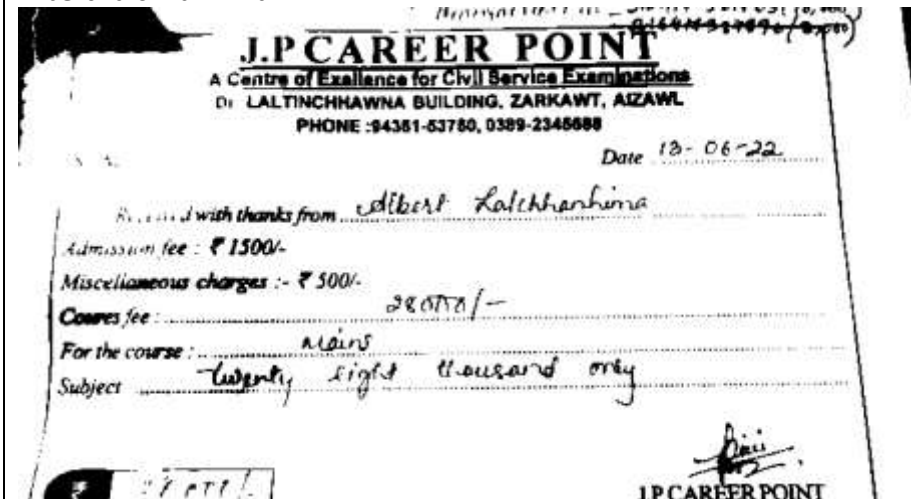 J.P CAREER POINT
A Centre of Exallance for Civil Service Examinations
LALTINCHHAWNA BUILDING, ZARKAWT, AIZAWL
PHONE :94361-53760, 0389-2346688
Date 13-06-22
with thanks from Albert Lalchhanhima
Admission fee : ₹ 1500/-
Miscellaneous charges :- ₹ 500/-
Coures fee : 28000/-
For the course : Mains
Subject twenty eight thousand only
J.P CAREER POINT